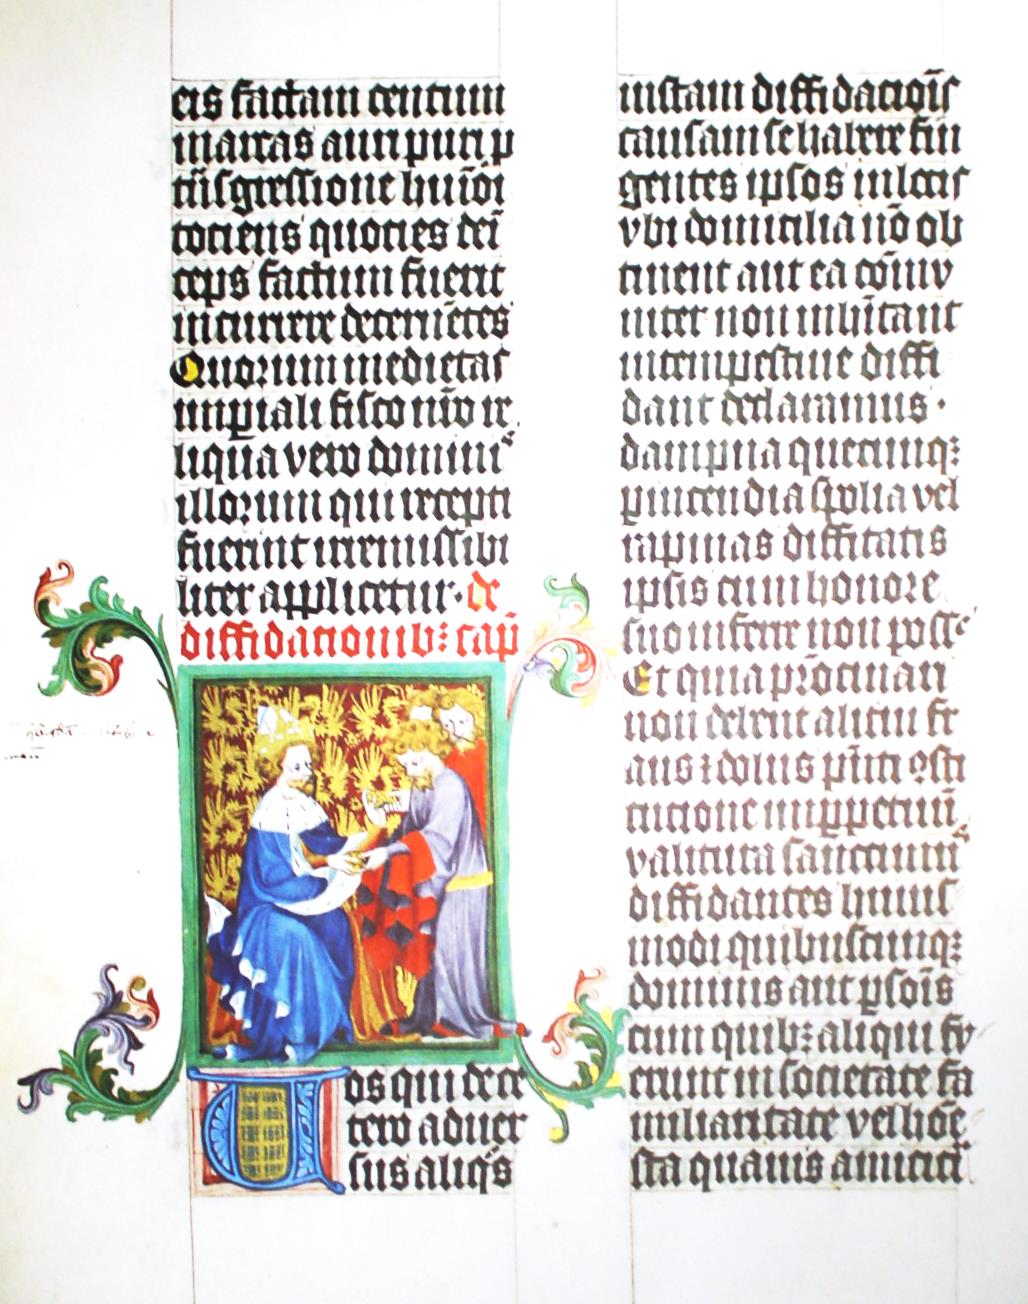 eis factam centum
marcas auri puri p
tūsgressione huiōi
tociens quocies deī
ceps factum fuerit
incurrere decernētes
Quorum medietas
imperiali fisco nūo re
liqua vero domini
illorum qui recepti
fuerint irremissibi
liter applicetur. de
diffidacionibꝫ capᷓ
Eos qui de ce
tero aduer
sus aliqͦs
iustam diffidaciōis
causam se habere fin
gentes ipsos in locis
vbi domicilia nō ob
tinent aut ea cōmu
niter non inhītant
intempestiue diffi
dant declaramus.
dampna quecunqꝫ
ꝑ incendia spolia vel
rapinas diffitatis
ipsis cum honore
suo inferre non posse
Et quia pͦrocinari
non debent alicui fr
aus ⁊ dolus pn̄ti ꝯsti
tucione inꝑpetuū
valitura sanctimus
diffidaciones huius
modi quibuscunqꝫ
dominis aut ꝑsōis
cum quibꝫ aliqui fu
erunt in societate fa
miliaritate vel honē
sta quauis amicici